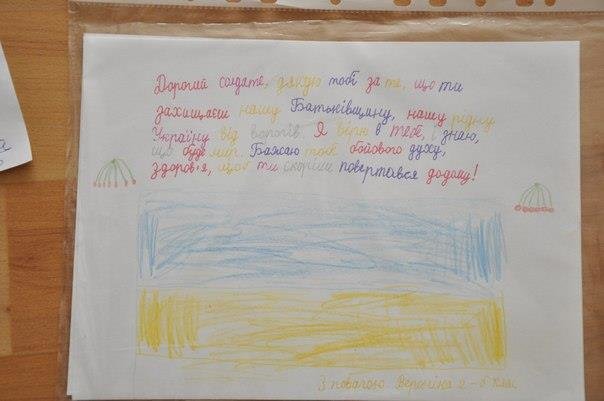 Дорогий солдате, дякую тобі за те, що ти
захищаєш нашу Батьківщину, нашу рідну
Україну від ворогів. Я вірю в тебе, і знаю,
що буде мир. Бажаю тобі бойового духу,
здоров'я, щоб ти скоріше повертався додому!
З повагою Вероніка 2-Б клас